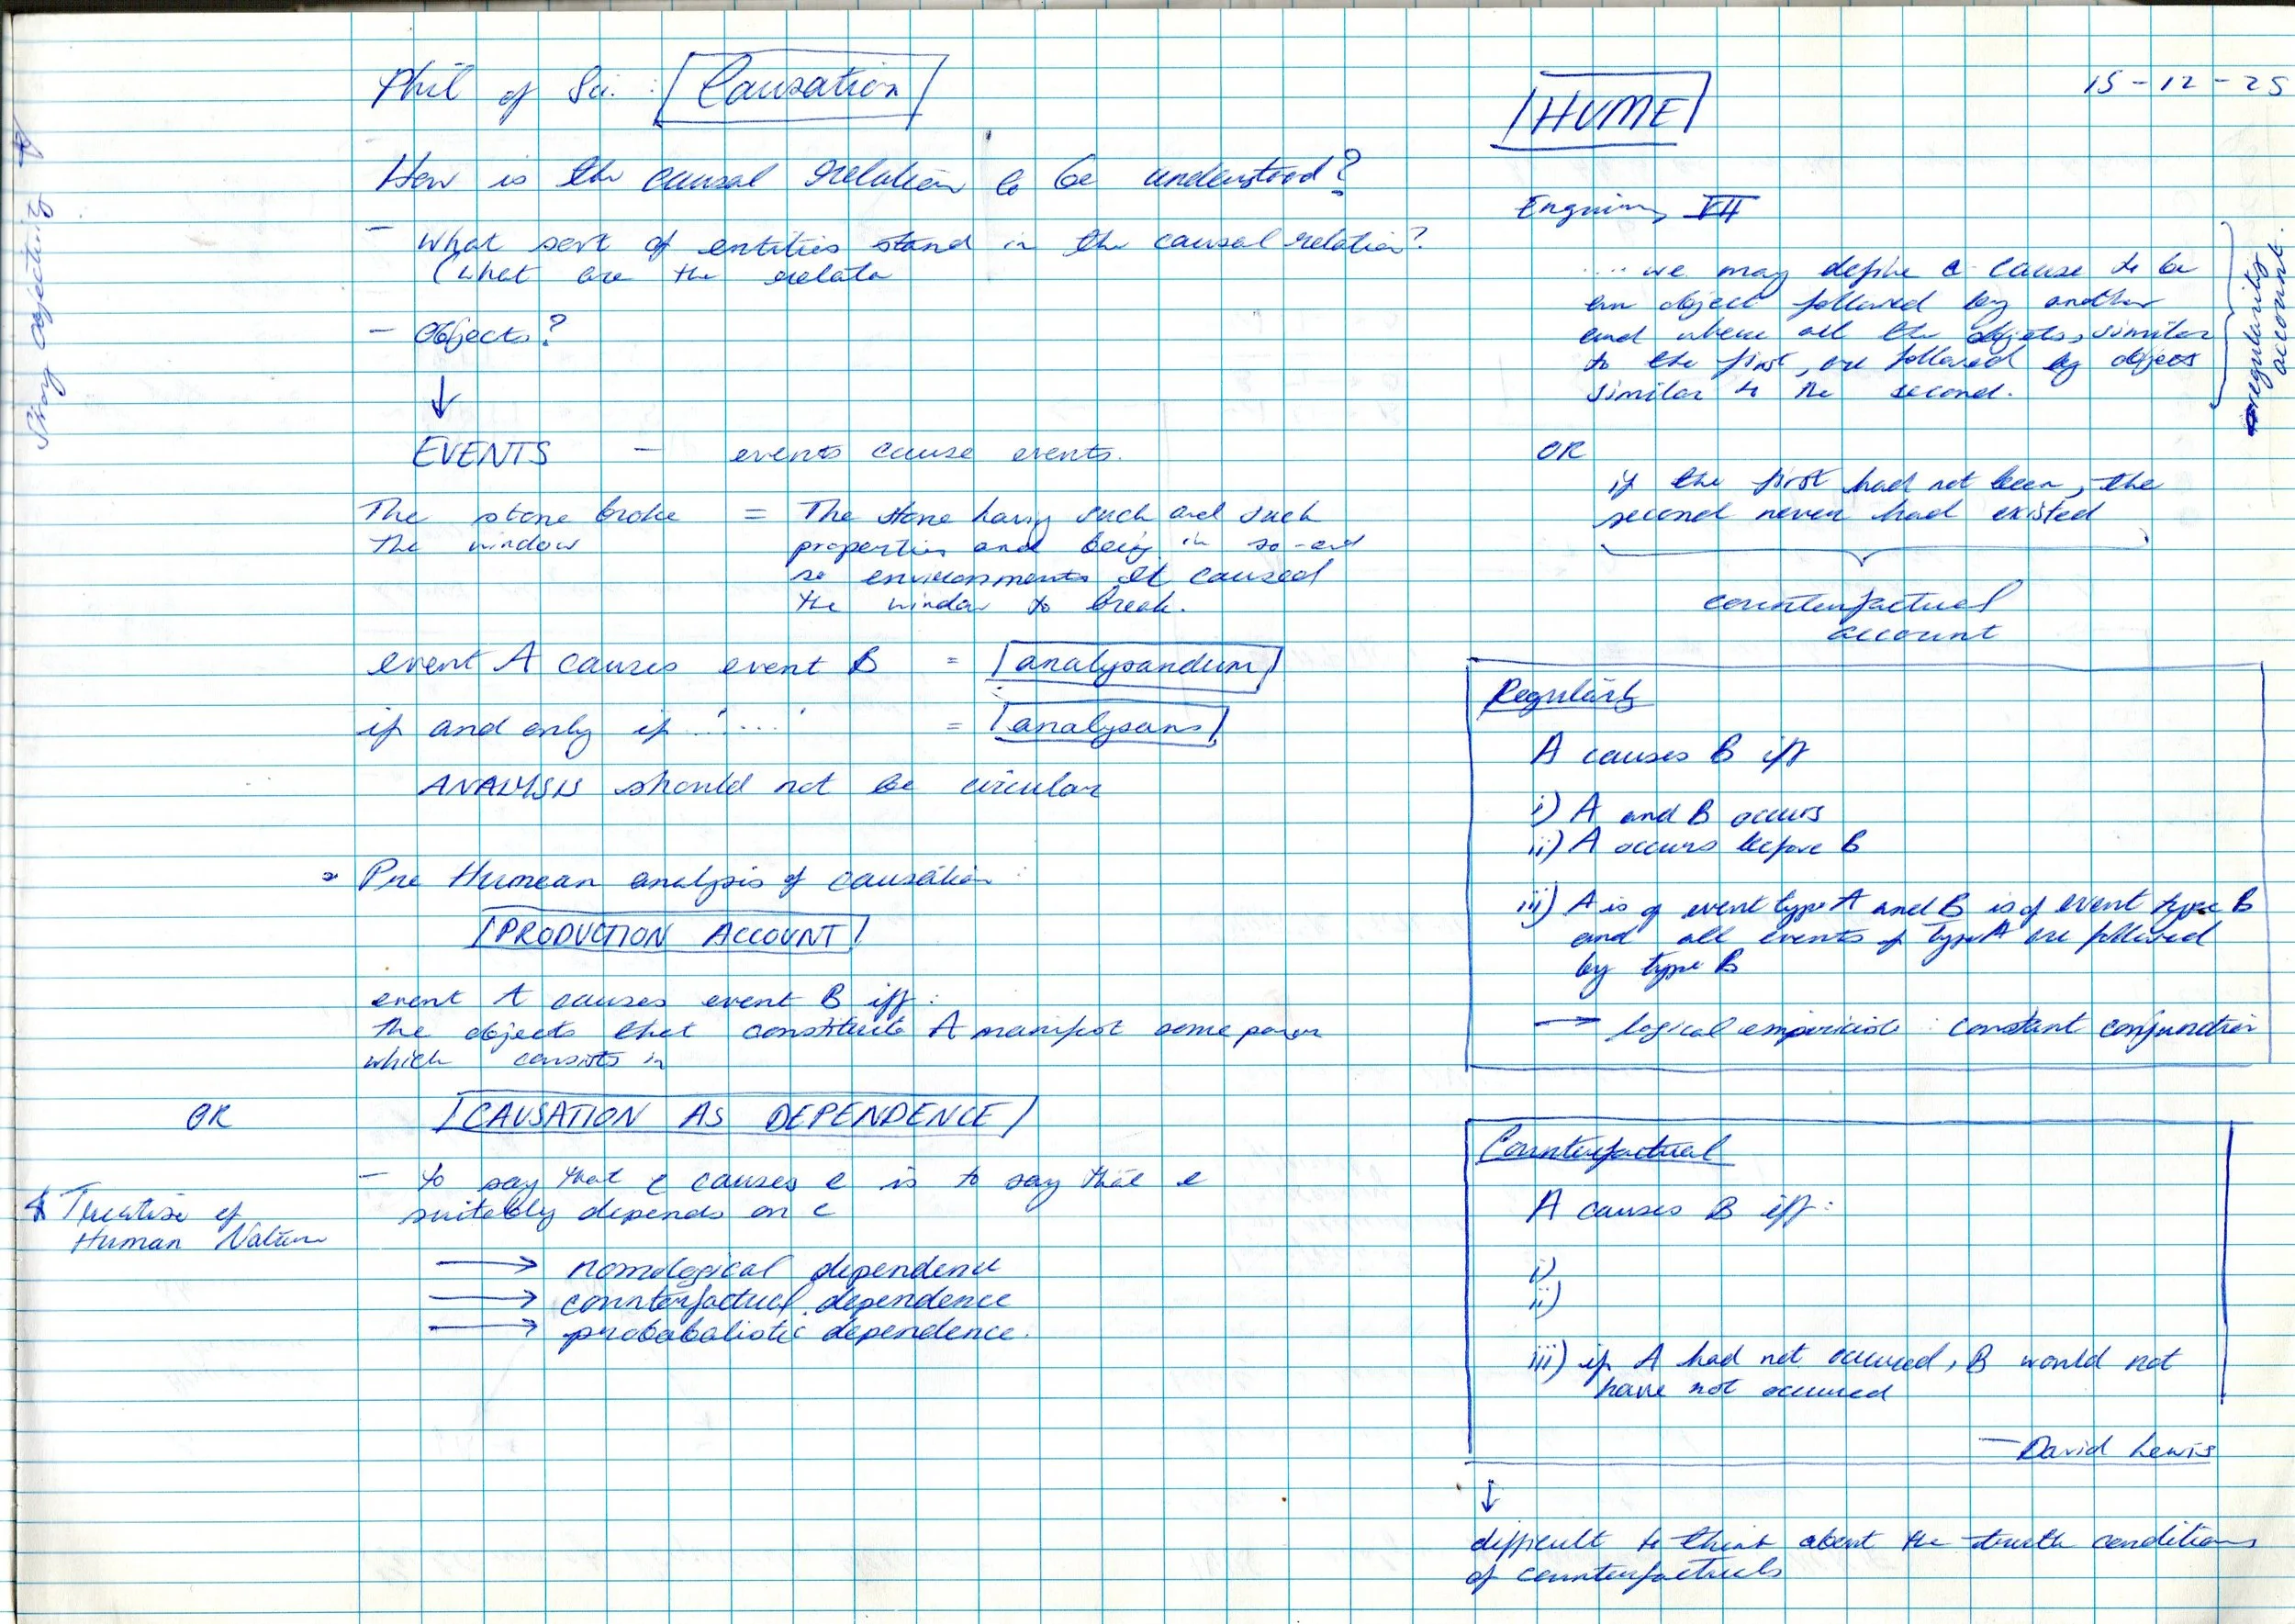 Phil of Sci. : Causation
How is the causal relation to be understood?
- What sort of entities stand in the causal relation?
(what are the relata
- Objects?
↓
EVENTS - events cause events.
The stone broke = The stone having such and such
the window properties and being in so-and
so environments it caused
the window to break.
event A causes event B = analysandum
if and only if '....' = analysans
ANALYSIS should not be circular
Pre Humean analysis of causation :
PRODUCTION ACCOUNT
event A causes event B iff :
the objects that constitute A manifest some power
which consists in
OR CAUSATION AS DEPENDENCE
- to say that c causes e is to say that e
suitably depends on c
Treatise of
Human Nature
→ nomological dependence
→ counterfactual dependence
→ probabalistic dependence.
Strong objectivity
15-12-25
HUME
Enquiry VII
.... we may define a cause to be
an object followed by another
and where all the objects, similar
to the first, are followed by objects
similar to the second.
regularity
account.
OR
if the first had not been, the
second never had existed
counterfactual
account
Regularity
A causes B iff
i) A and B occurs
ii) A occurs before B
iii) A is of event type A and B is of event type B
and all events of type A are followed
by type B
→ logical empiricists : constant conjunction
Counterfactual
A causes B iff :
i)
ii)
iii) if A had not occured, B would not
have not occured
- David Lewis
↓
difficult to think about the truth conditions
of counterfactuals